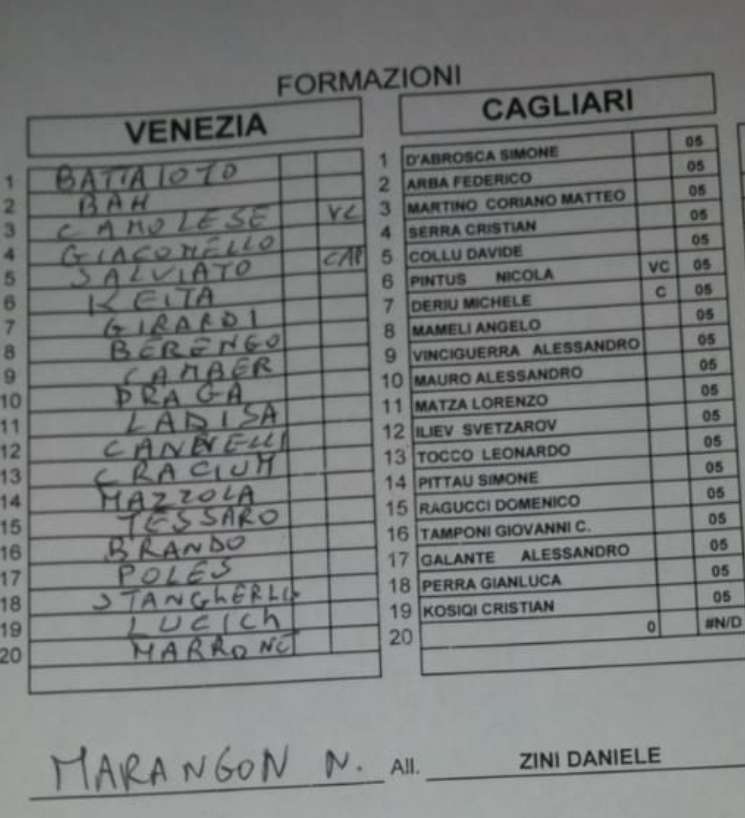 FORMAZIONI
VENEZIA
1 BATTAIOTO
2 BAH
3 CAMOLESE VC
4 GIACOMELLO
5 SALVIATO CAP
6 KEITA
7 GIRARDI
8 BERENGO
9 CAMBER
10 DRAGA
11 LADISA
12
13 CRACIUM
14 MAZZOLA
15 TESSARO
16 BRANDO
17 POLES
18 STANGHERLIN
19 LUCICH
20 MARRONE
MARANGON N.
CAGLIARI
1 D'ABROSCA SIMONE 05
2 ARBA FEDERICO 05
3 MARTINO CORIANO MATTEO 05
4 SERRA CRISTIAN 05
5 COLLU DAVIDE 05
6 PINTUS NICOLA VC 05
7 DERIU MICHELE C 05
8 MAMELI ANGELO 05
9 VINCIGUERRA ALESSANDRO 05
10 MAURO ALESSANDRO 05
11 MATZA LORENZO 05
12 ILIEV SVETZAROV 05
13 TOCCO LEONARDO 05
14 PITTAU SIMONE 05
15 RAGUCCI DOMENICO 05
16 TAMPONI GIOVANNI C. 05
17 GALANTE ALESSANDRO 05
18 PERRA GIANLUCA 05
19 KOSIQI CRISTIAN 05
20 0 #N/D
All. ZINI DANIELE